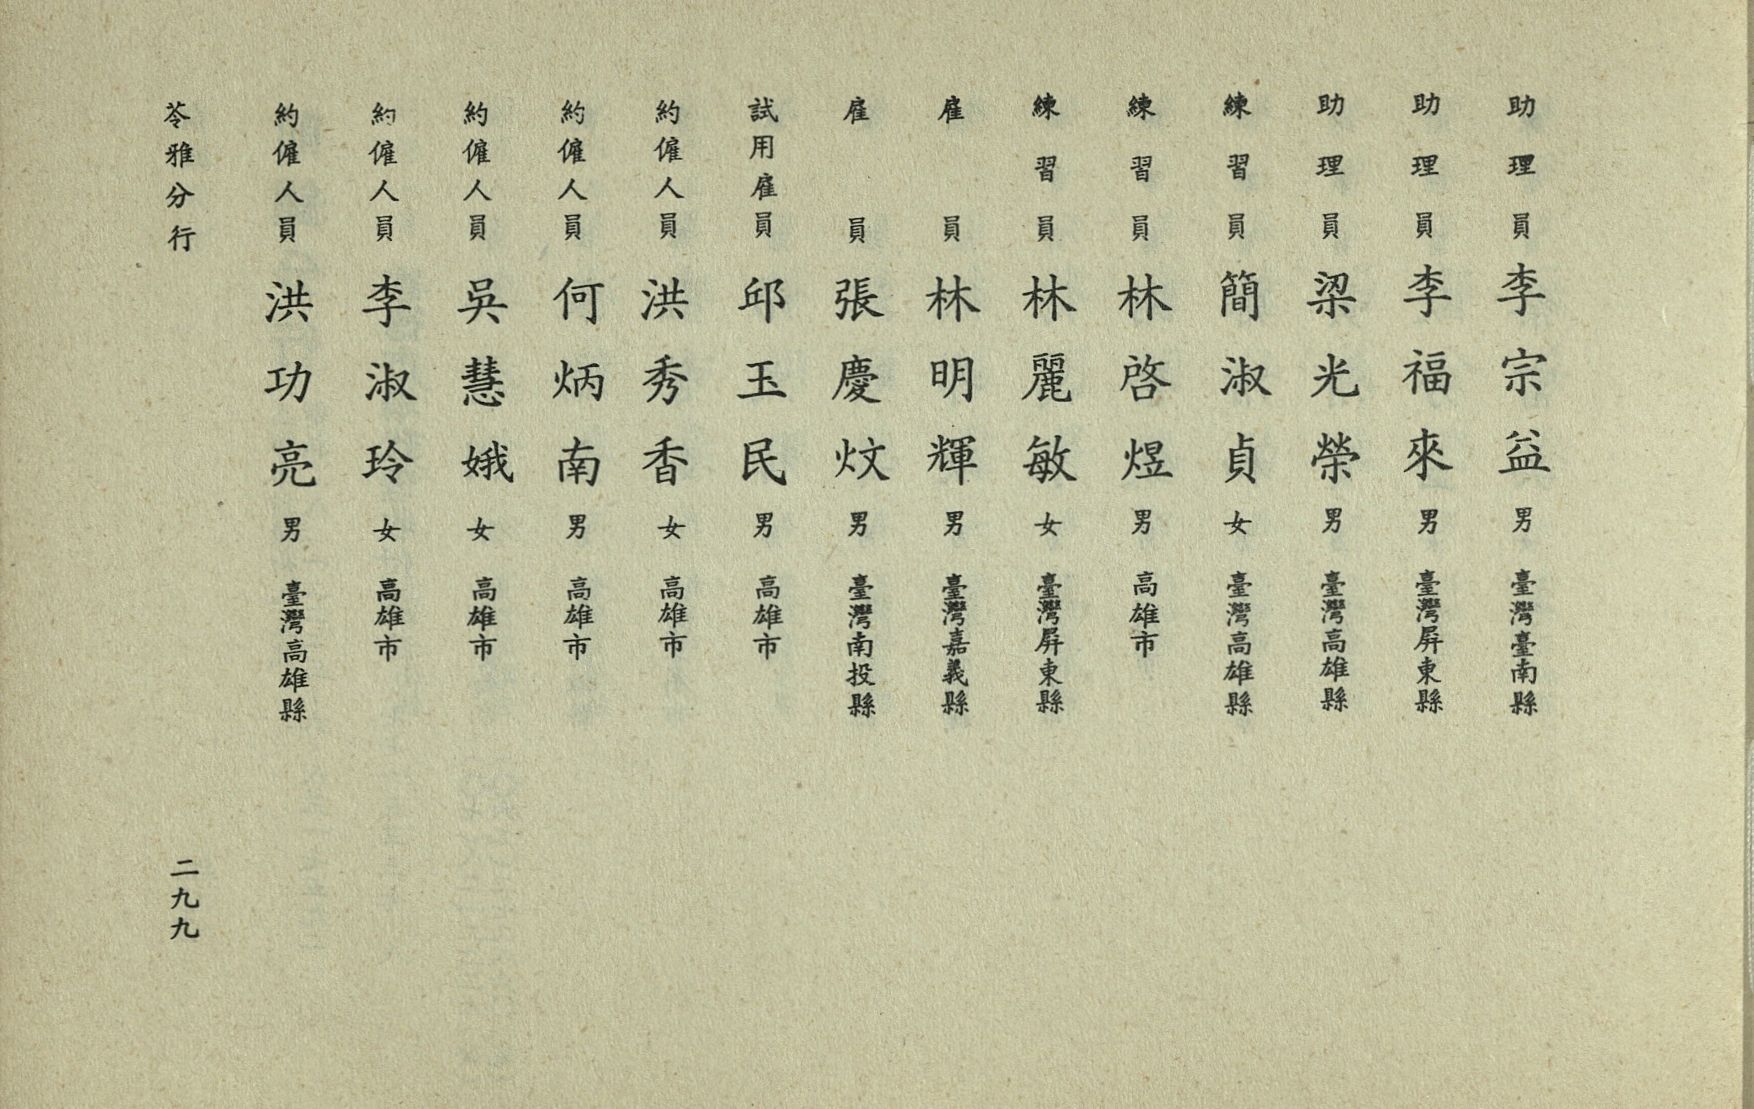 助理員 李宗益 男 臺灣臺南縣
助理員 李福來 男 臺灣屏東縣
助理員 梁光榮 男 臺灣高雄縣
練習員 簡淑貞 女 臺灣高雄縣
練習員 林啓煜 男 高雄市
練習員 林麗敏 女 臺灣屏東縣
雇員 林明輝 男 臺灣嘉義縣
雇員 張慶炆 男 臺灣南投縣
試用雇員 邱玉民 男 高雄市
約僱人員 洪秀香 女 高雄市
約僱人員 何炳南 男 高雄市
約僱人員 吳慧娥 女 高雄市
約僱人員 李淑玲 女 高雄市
約僱人員 洪功亮 男 臺灣高雄縣
苓雅分行 二九九